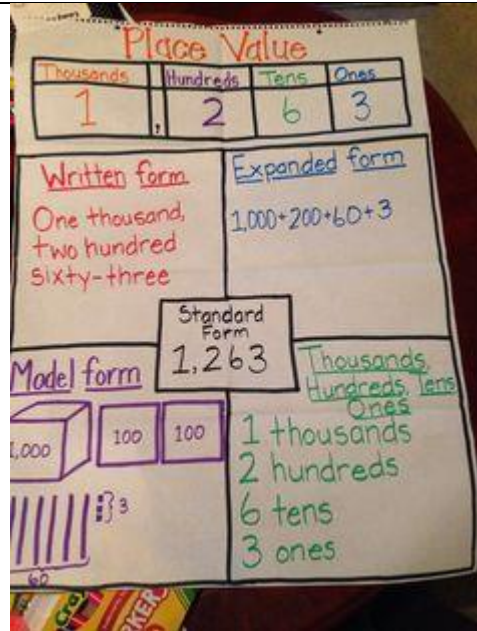 Place Value
Thousands Hundreds Tens Ones
1 , 2 6 3
Written form
One thousand,
two hundred
sixty-three
Expanded form
1,000+200+60+3
Standard
Form
1,263
Model form
1,000 100 100
3
60
Thousands,
Hundreds, Tens
Ones
1 thousands
2 hundreds
6 tens
3 ones